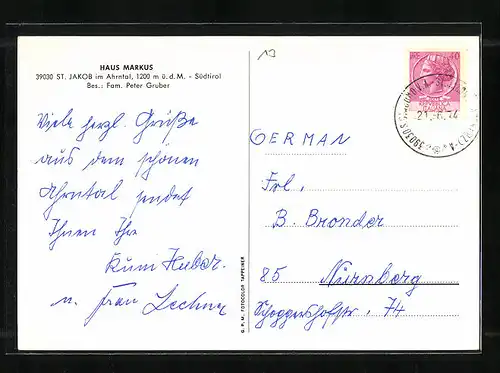 HAUS MARKUS
39030 ST. JAKOB im Ahrntal, 1200 m ü. d. M. - Südtirol
Bes.: Fam. Peter Gruber
Viele herzl. Grüße
aus dem schönen
Ahrntal sendet
Ihnen Ihr
Huber.
u. Frau Lechner
G. P. M. FOTOCOLOR TAPPEINER
13
40
21.-6.74
GERMAN
Frl,
B. Bronder
85 Nürnberg
74